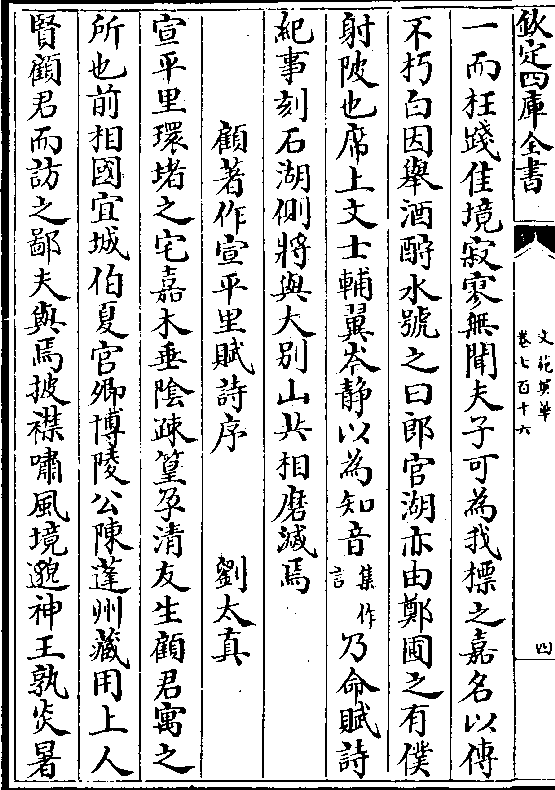 欽定四庫全書
文苑英華
卷七百十六
四
一而枉踐佳境寂寥無聞夫子可為我標之嘉名以傳
不朽白因舉酒酹水號之曰郎官湖亦由鄭圃之有僕
射陂也席上文士輔翼岑静以為知音集作言乃命賦詩
紀事刻石湖側將與大别山共相磨滅焉
顧著作宣平里賦詩序 劉太真
宣平里環堵之宅嘉木垂陰疎篁孕清友生顧君寓之
所也前相國宜城伯夏官卿博陵公陳蓬州藏用上人
賢顧君而訪之鄙夫與焉披襟嘯風境邈神王孰炎暑